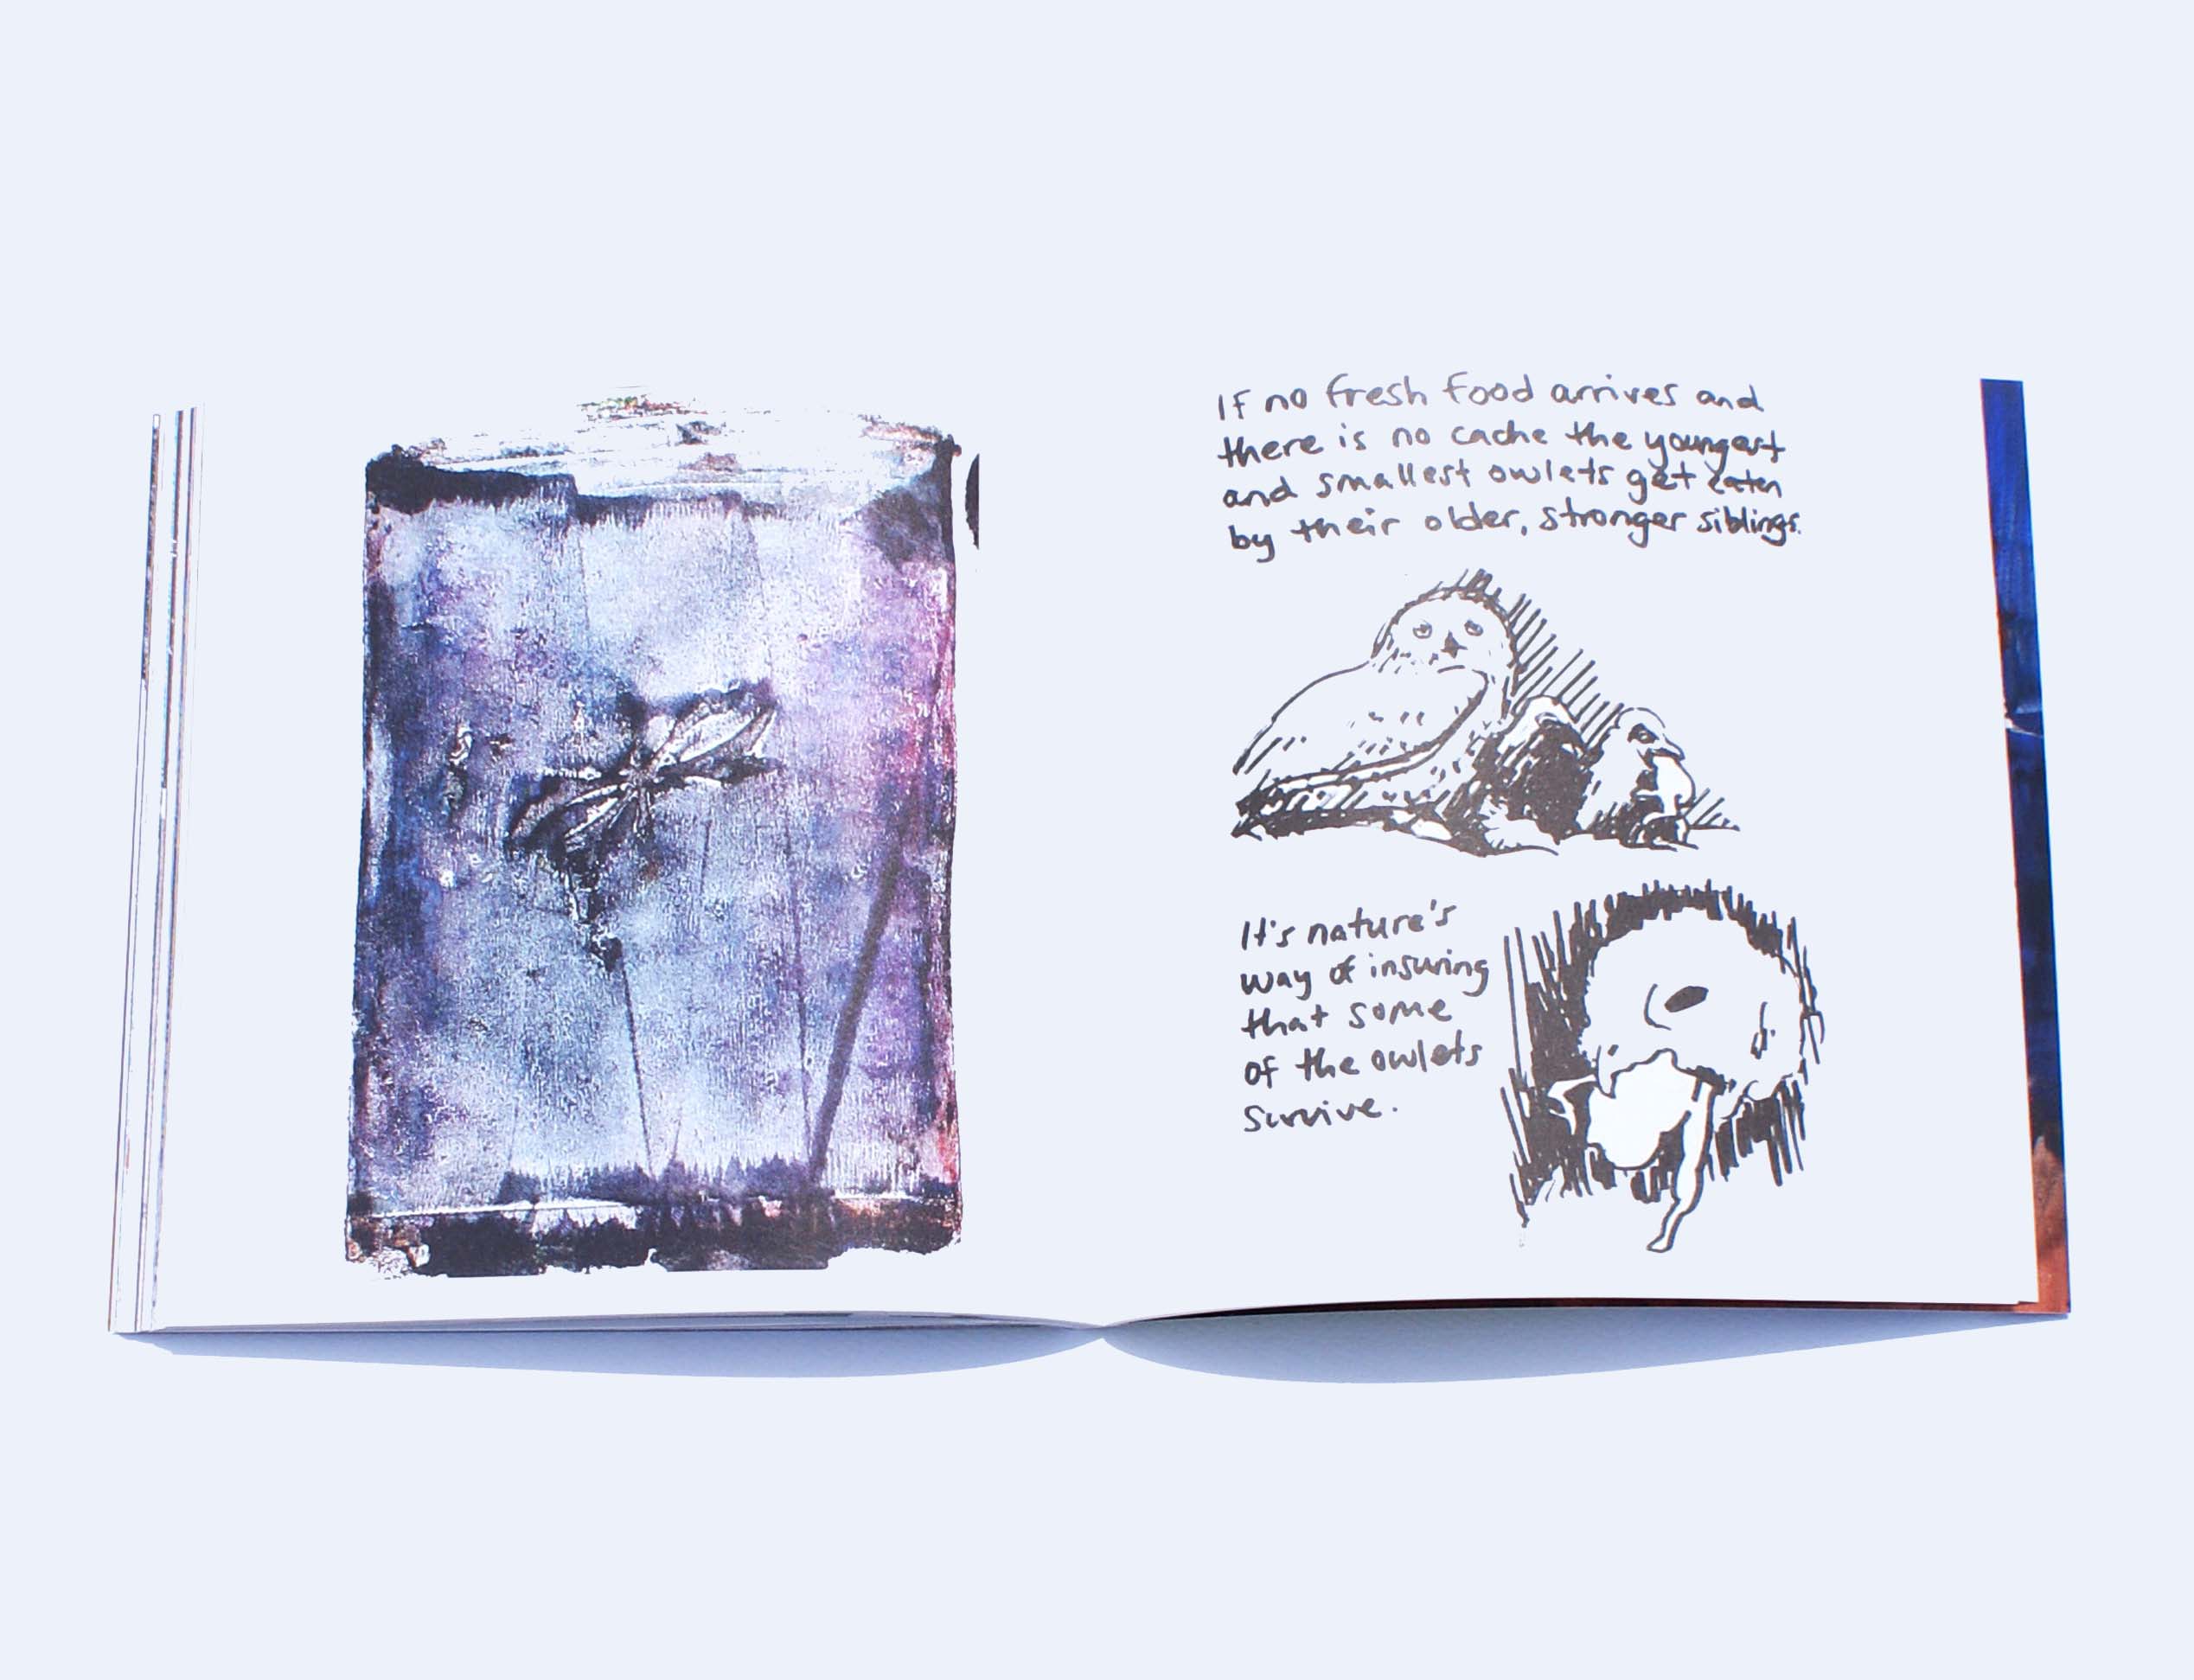 If no fresh food arrives and
there is no cache the youngest
and smallest owlets get eaten
by their older, stronger siblings.
It's nature's
way of insuring
that some
of the owlets
survive.